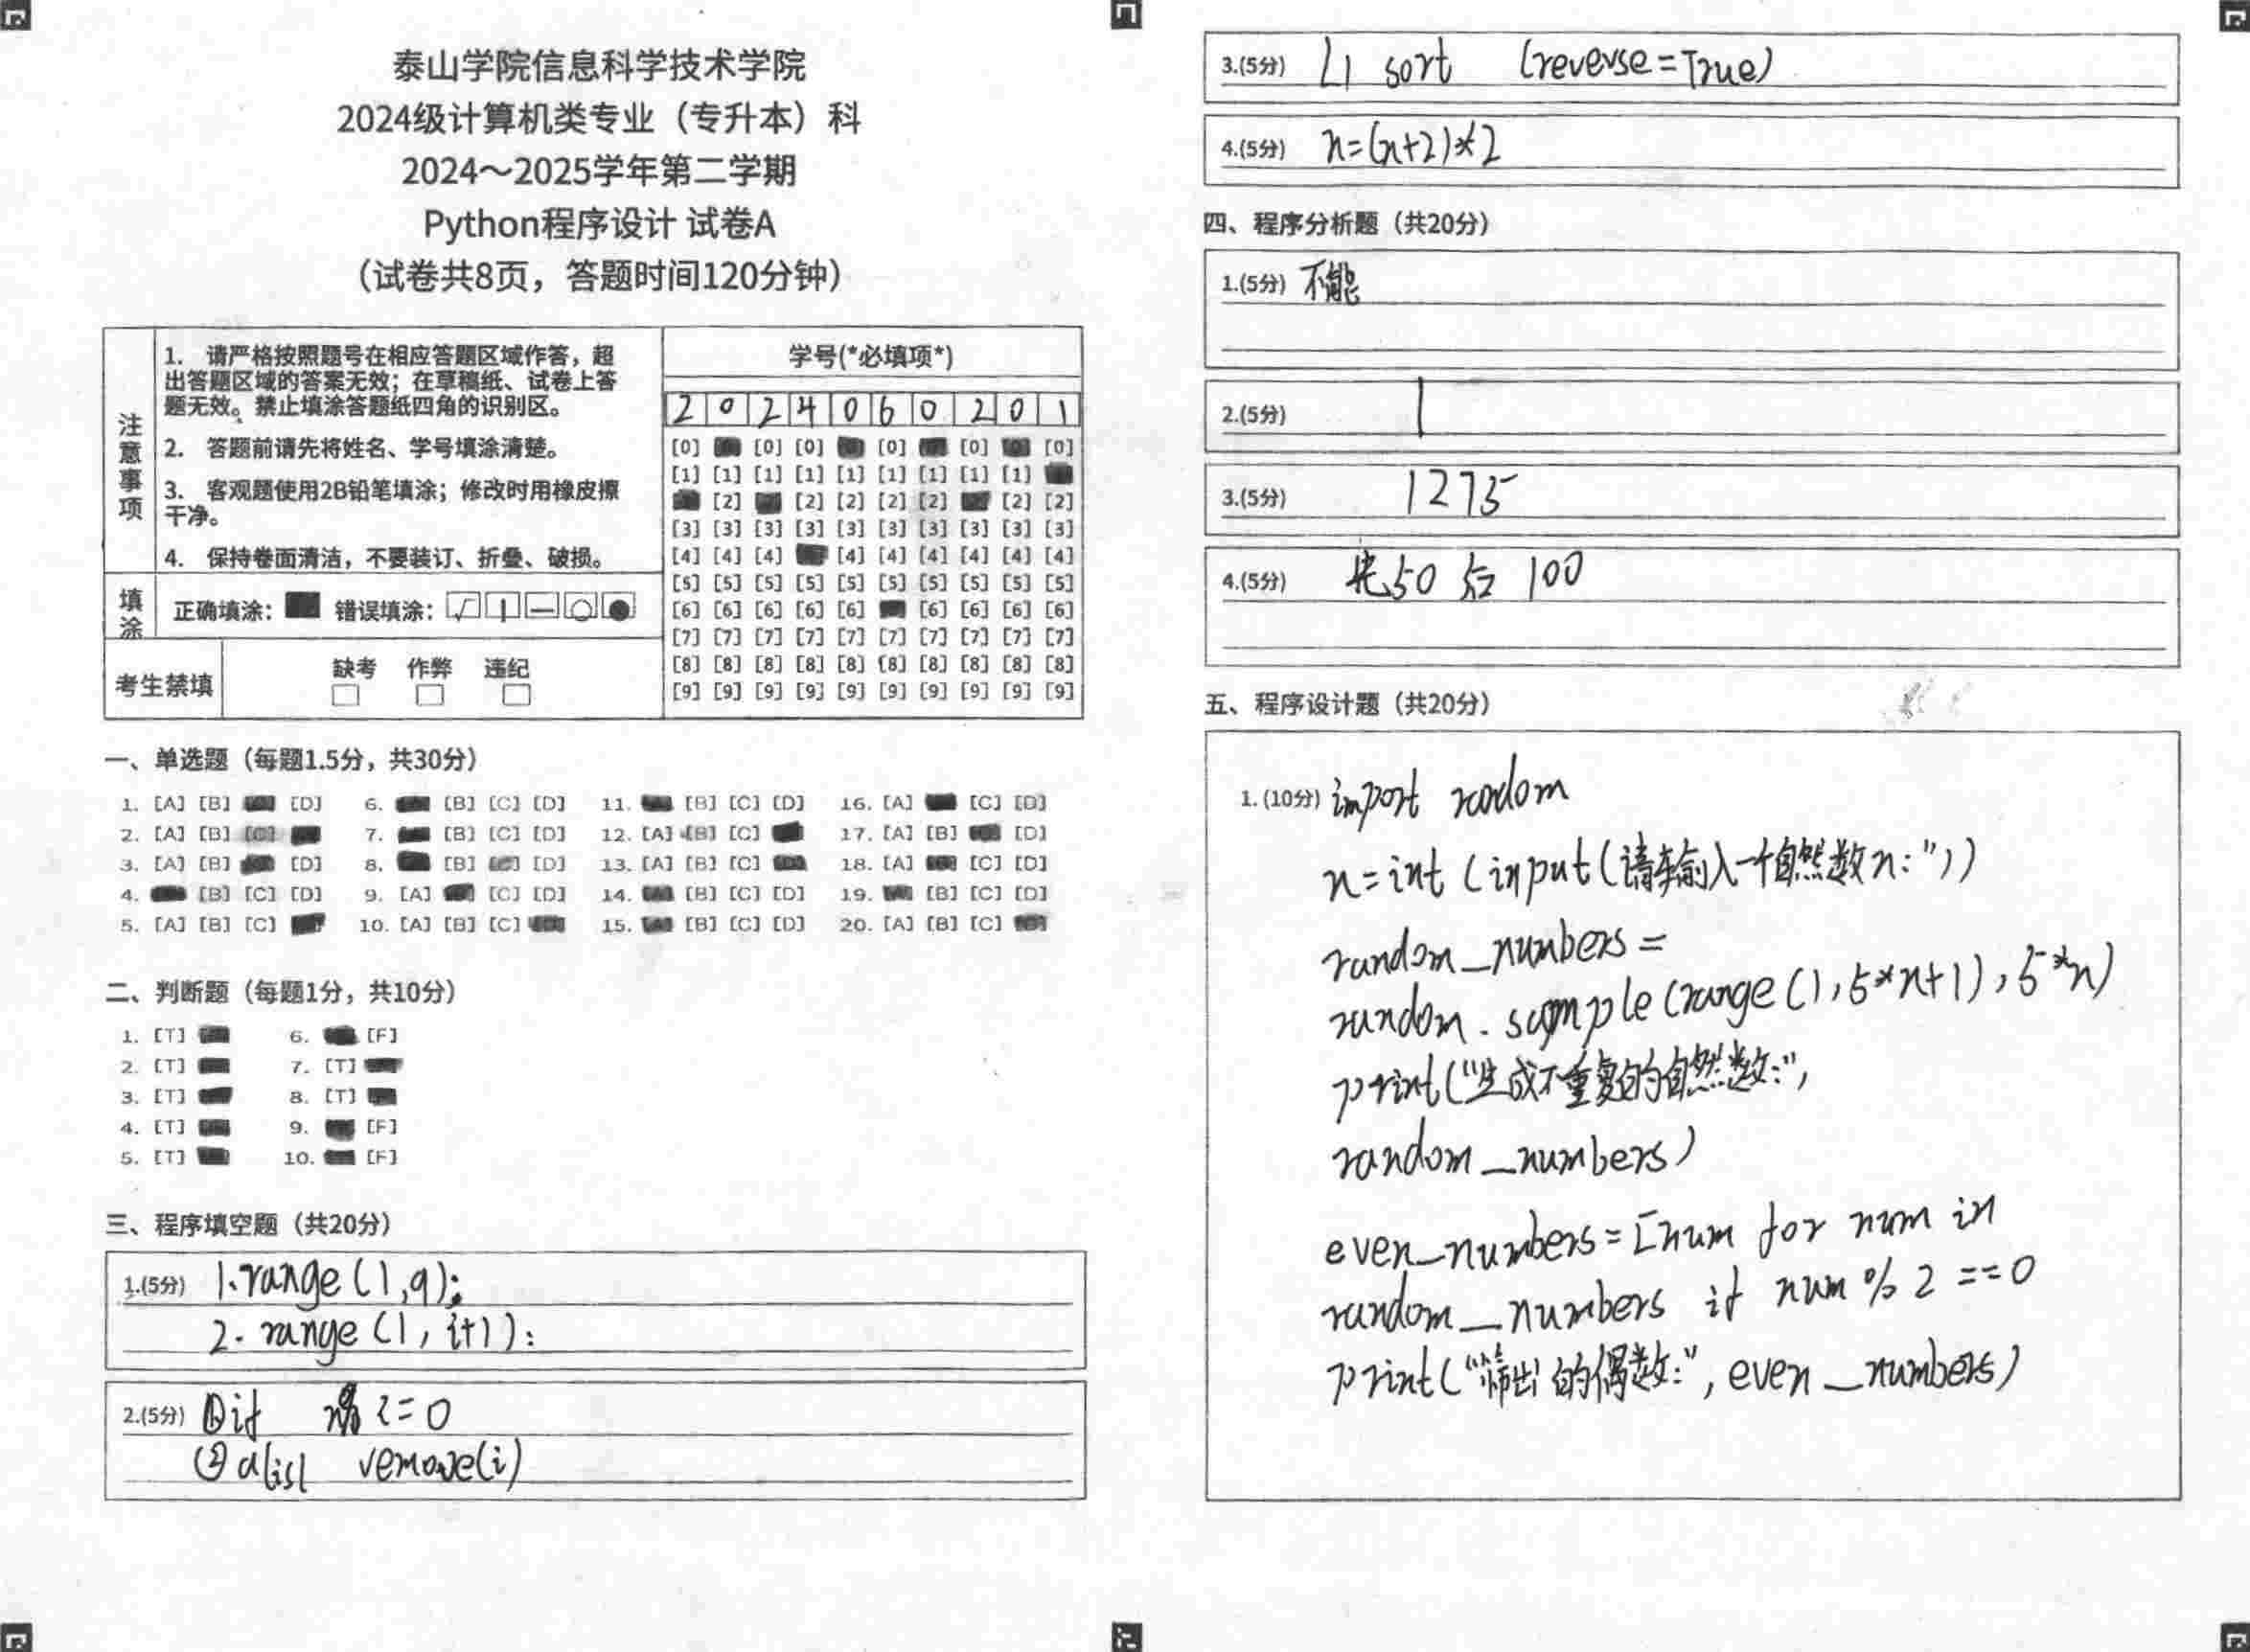 泰山学院信息科学技术学院
2024级计算机类专业（专升本）科
2024～2025学年第二学期
Python程序设计 试卷A
（试卷共8页，答题时间120分钟）
注意事项
1. 请严格按照题号在相应答题区域作答，超
出答题区域的答案无效；在草稿纸、试卷上答
题无效。禁止填涂答题纸四角的识别区。
2. 答题前请先将姓名、学号填涂清楚。
3. 客观题使用2B铅笔填涂；修改时用橡皮擦
干净。
4. 保持卷面清洁，不要装订、折叠、破损。
填涂
正确填涂： 错误填涂：
考生禁填
缺考 作弊 违纪
学号(*必填项*)
2 0 2 4 0 6 0 2 0 1
[0] [0] [0] [0] [0] [0]
[1] [1] [1] [1] [1] [1] [1] [1] [1]
[2] [2] [2] [2] [2] [2] [2]
[3] [3] [3] [3] [3] [3] [3] [3] [3] [3]
[4] [4] [4] [4] [4] [4] [4] [4] [4]
[5] [5] [5] [5] [5] [5] [5] [5] [5] [5]
[6] [6] [6] [6] [6] [6] [6] [6] [6]
[7] [7] [7] [7] [7] [7] [7] [7] [7] [7]
[8] [8] [8] [8] [8] [8] [8] [8] [8] [8]
[9] [9] [9] [9] [9] [9] [9] [9] [9] [9]
一、单选题（每题1.5分，共30分）
1. [A] [B] [D] 6. [B] [C] [D] 11. [B] [C] [D] 16. [A] [C] [D]
2. [A] [B] [C] 7. [B] [C] [D] 12. [A] [B] [C] 17. [A] [B] [D]
3. [A] [B] [D] 8. [B] [C] [D] 13. [A] [B] [C] 18. [A] [C] [D]
4. [B] [C] [D] 9. [A] [C] [D] 14. [B] [C] [D] 19. [B] [C] [D]
5. [A] [B] [C] 10. [A] [B] [C] 15. [B] [C] [D] 20. [A] [B] [C]
二、判断题（每题1分，共10分）
1. [T] 6. [F]
2. [T] 7. [T]
3. [T] 8. [T]
4. [T] 9. [F]
5. [T] 10. [F]
三、程序填空题（共20分）
1.(5分) 1.range(1,9):
2. range(1, i+1):
2.(5分) ①if i=0
② alist remove(i)
3.(5分) L1 sort (reverse=True)
4.(5分) n=(n+2)*2
四、程序分析题（共20分）
1.(5分) 不能
2.(5分) 1
3.(5分) 1275
4.(5分) 先50 后 100
五、程序设计题（共20分）
1. (10分) import rodom
n=int (input(请输入一个自然数n:"))
random_numbers=
random.sample(range(1,5*n+1),5*n)
print("生成不重复的自然数:",
random_numbers)
even_numbers=[num for num in
random_numbers if num%2==0
print("筛出的偶数:", even_numbers)